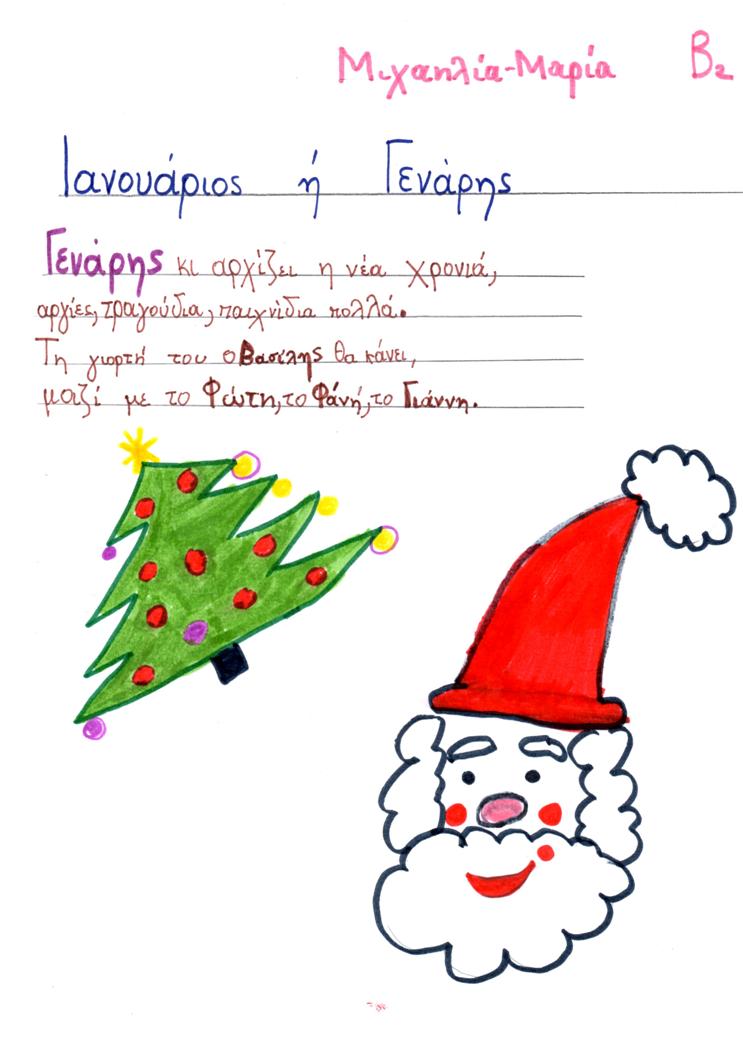 Μιχαηλία-Μαρία Β2
Ιανουάριος ή Γενάρης
Γενάρης κι αρχίζει η νέα χρονιά,
αργίες, τραγούδια, παιχνίδια πολλά.
Τη γιορτή του ο Βασίλης θα κάνει,
μαζί με το Φώτη, το Φάνή, το Γιάννη.